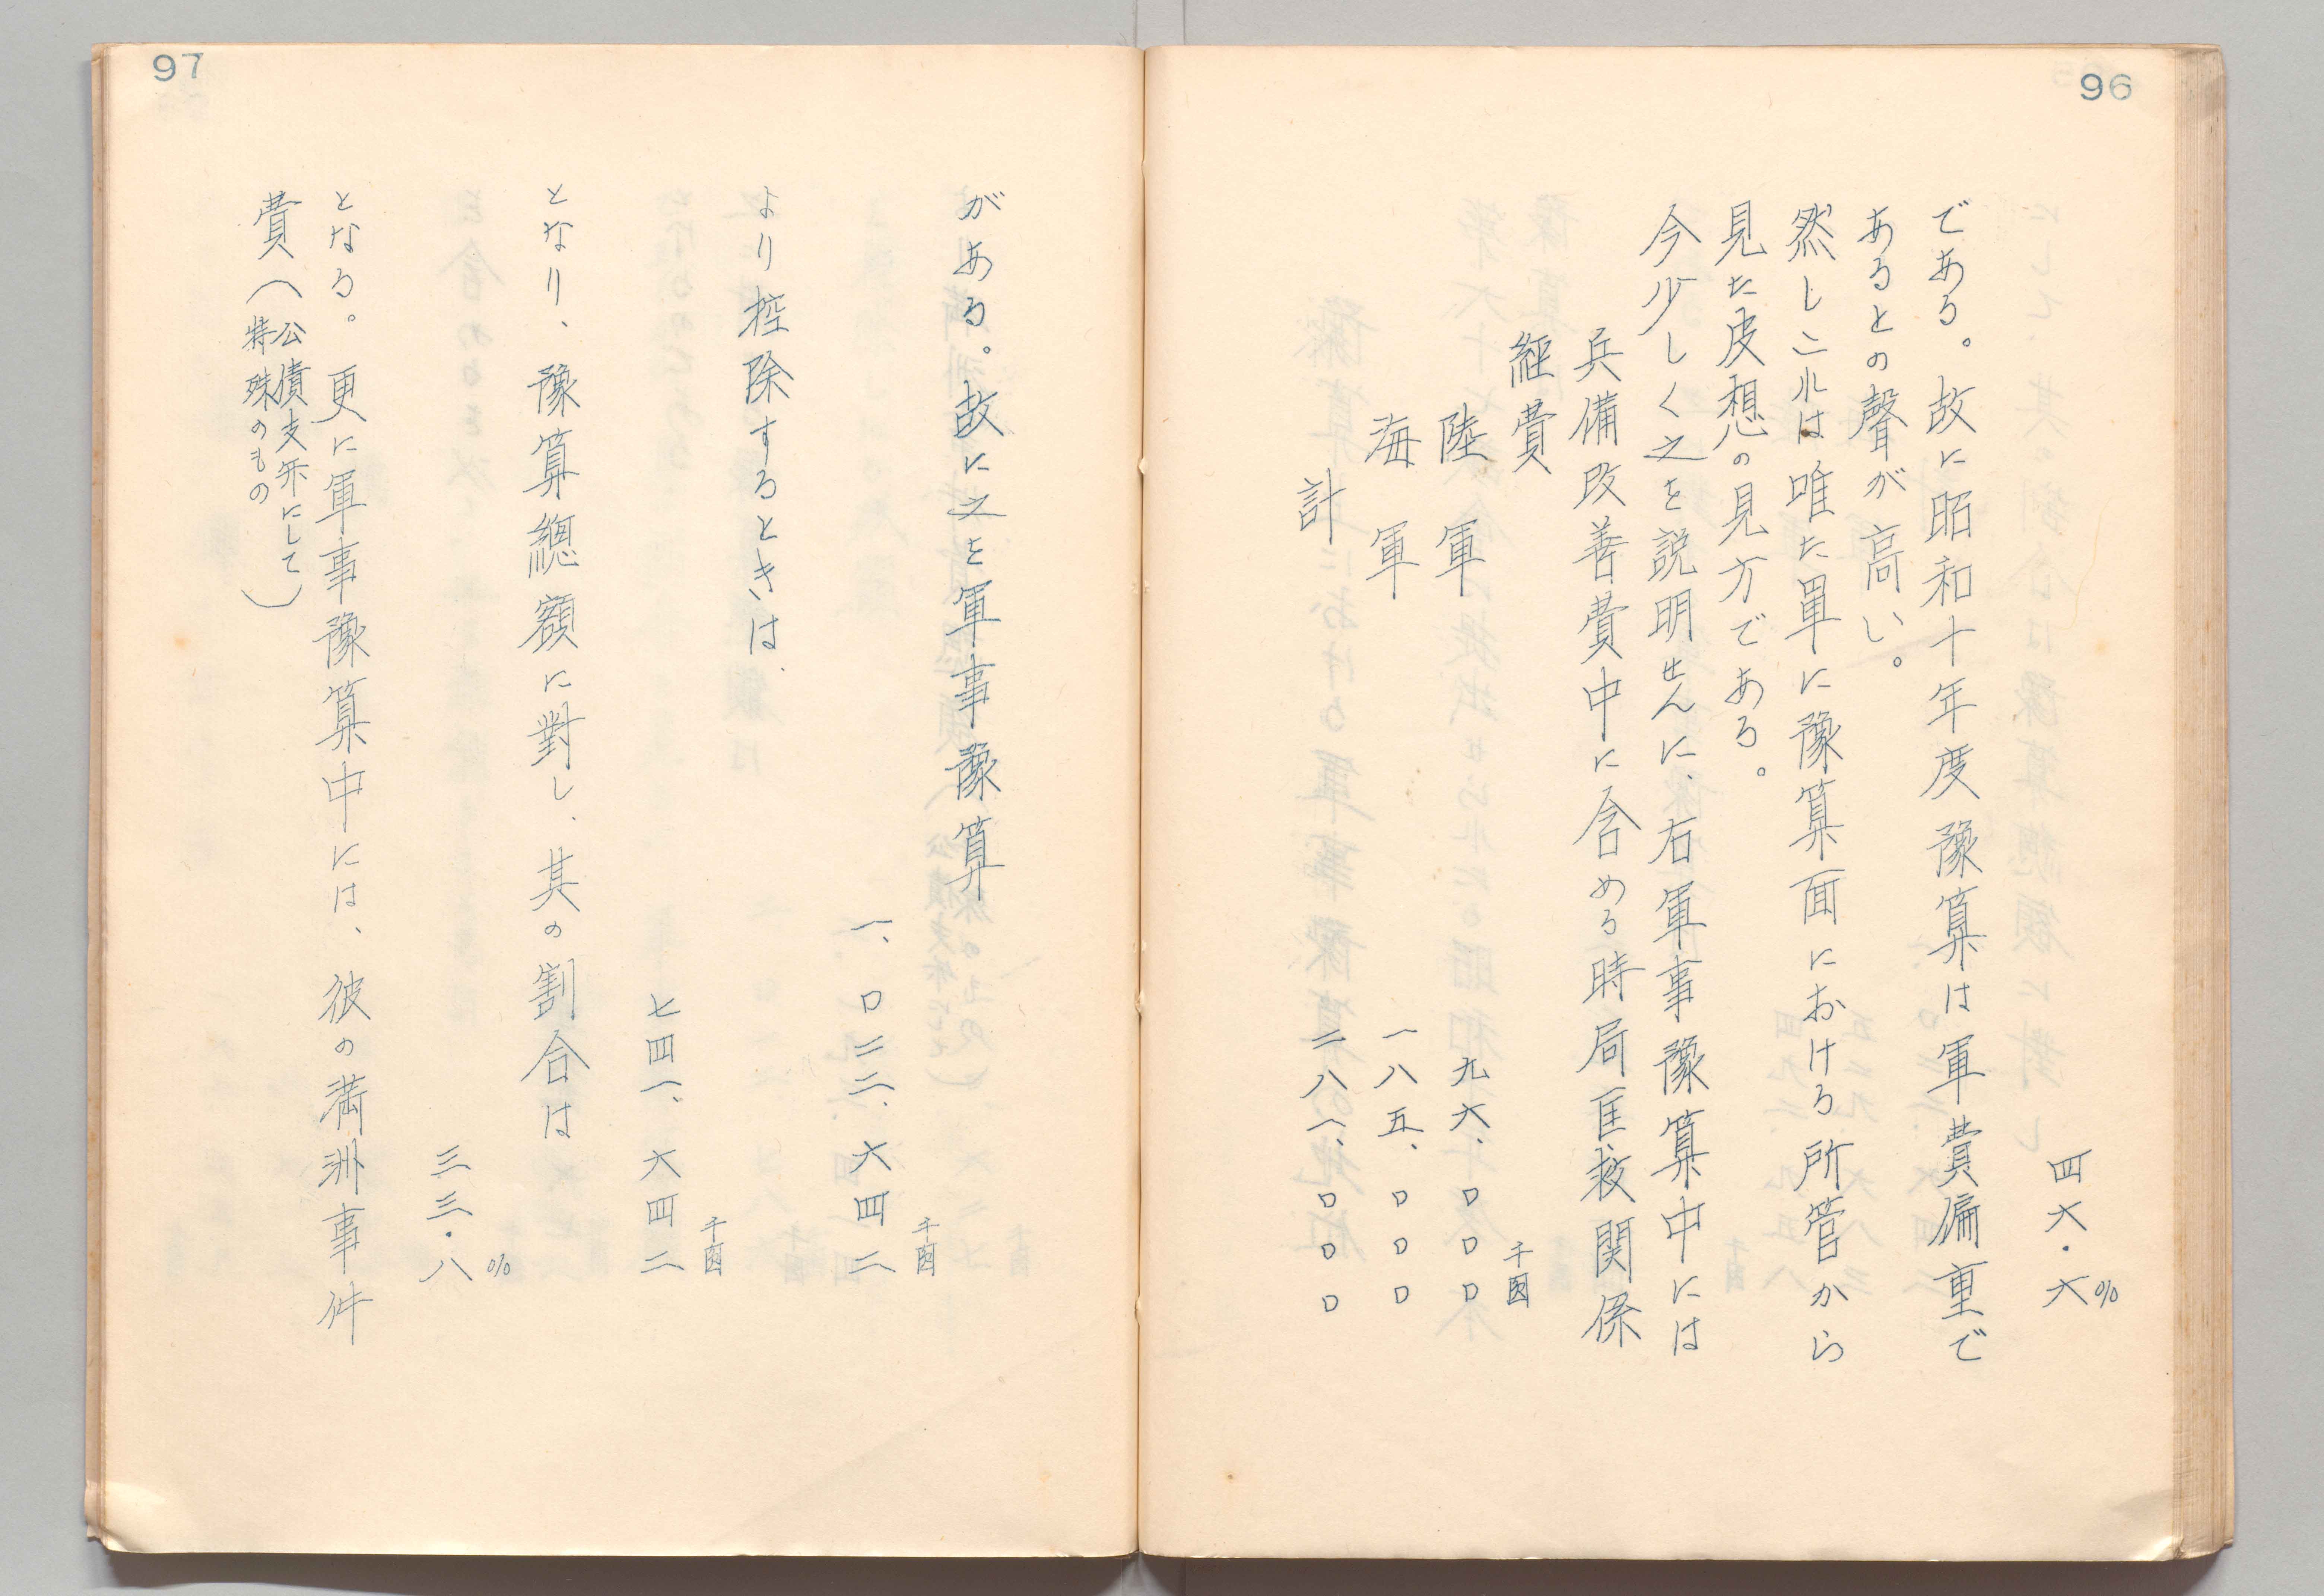 96
四六・六%
である。故に昭和十年度豫算は軍費偏重で
あるとの聲が高い。
然しこれは唯た單に豫算面における所管から
見た皮想の見方である。
今少しく之を説明せんに、右軍事豫算中には
兵備改善費中に含める時局匡救関係
経費
千圓
陸軍 九六、〇〇〇
海軍 一八五、〇〇〇
計 二八一、〇〇〇
97
がある。故に之を軍事豫算
千圓
一、〇二二、六四二
より控除するときは、
千圓
七四一、六四二
となり、豫算總額に對し、其の割合は
%
三三・八
となる。更に軍事豫算中には、彼の満洲事件
費(公債支弁にして
特殊のもの)